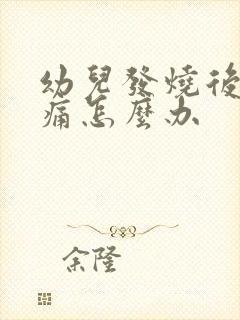 幼兒發燒後
痛怎麼办
余隆